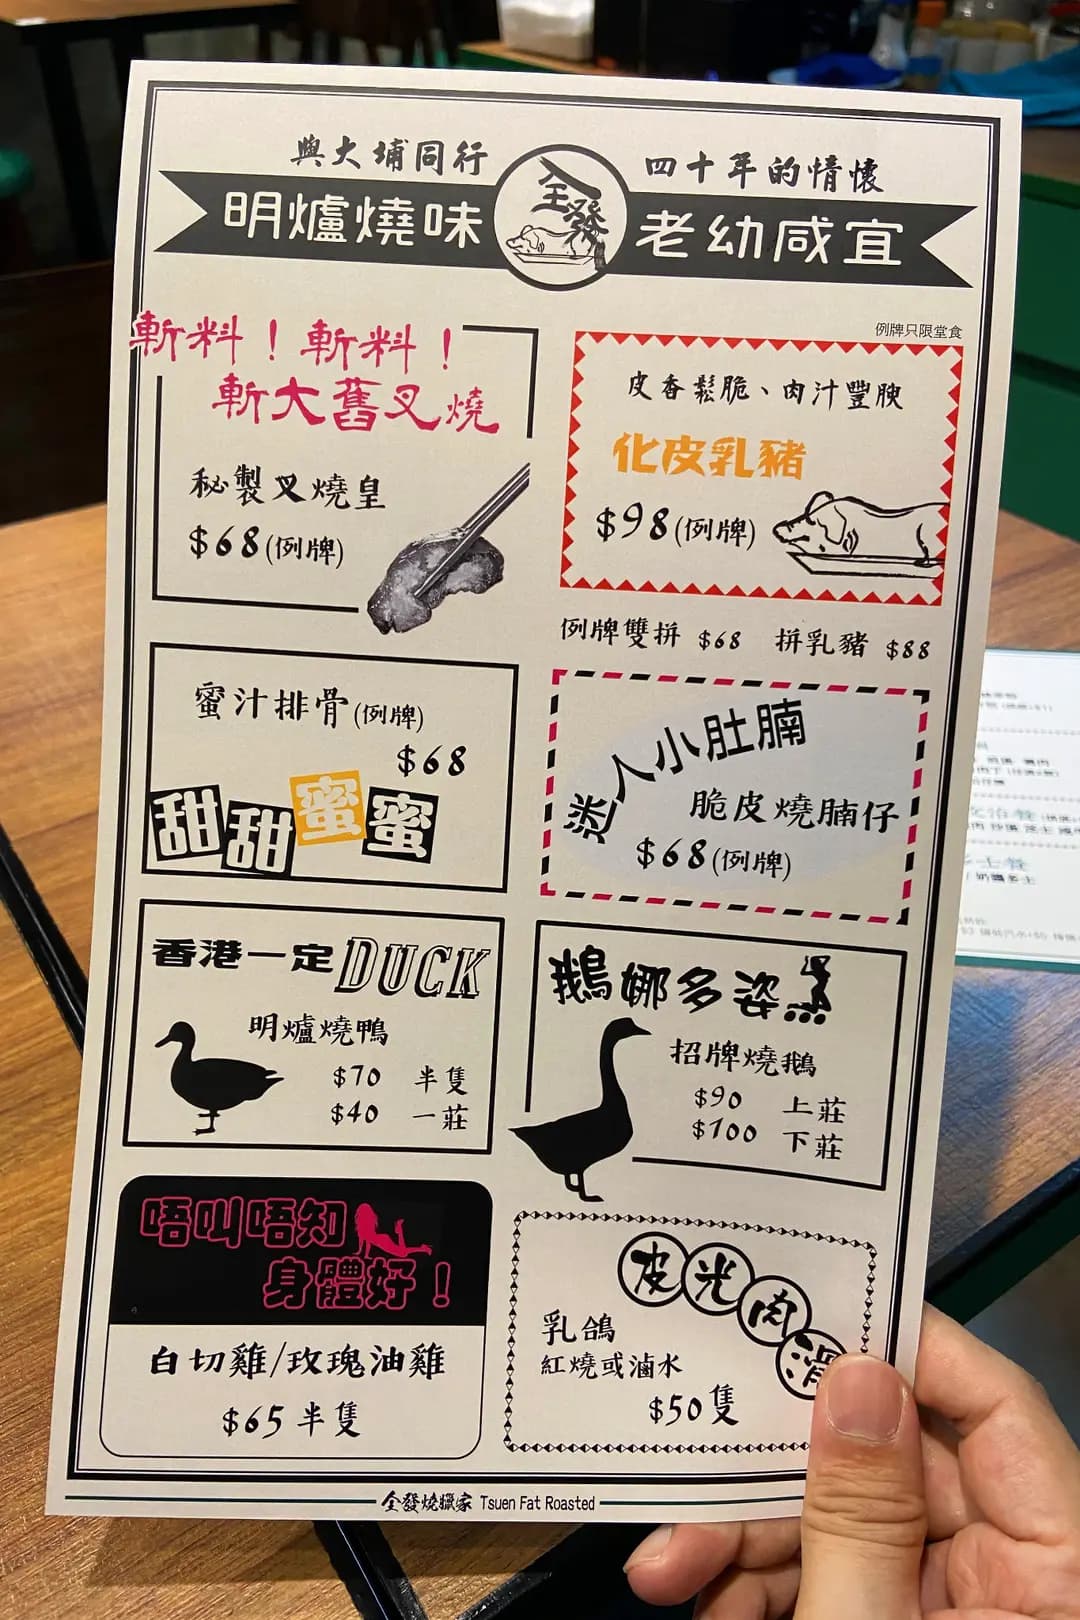 與大埔同行
四十年的情懷
明爐燒味
全發
老幼咸宜
例牌只限堂食
斬料！斬料！
斬大舊叉燒
秘製叉燒皇
$68(例牌)
皮香鬆脆、肉汁豐腴
化皮乳豬
$98(例牌)
例牌雙拼 $68 拼乳豬 $88
蜜汁排骨(例牌)
$68
甜甜蜜蜜
迷人小肚腩
脆皮燒腩仔
$68(例牌)
香港一定DUCK
明爐燒鴨
$70 半隻
$40 一莊
鵝娜多姿
招牌燒鵝
$90 上莊
$100 下莊
唔叫唔知
身體好！
白切雞/玫瑰油雞
$65半隻
皮光肉滑
乳鴿
紅燒或滷水
$50隻
全發燒臘家 Tsuen Fat Roasted